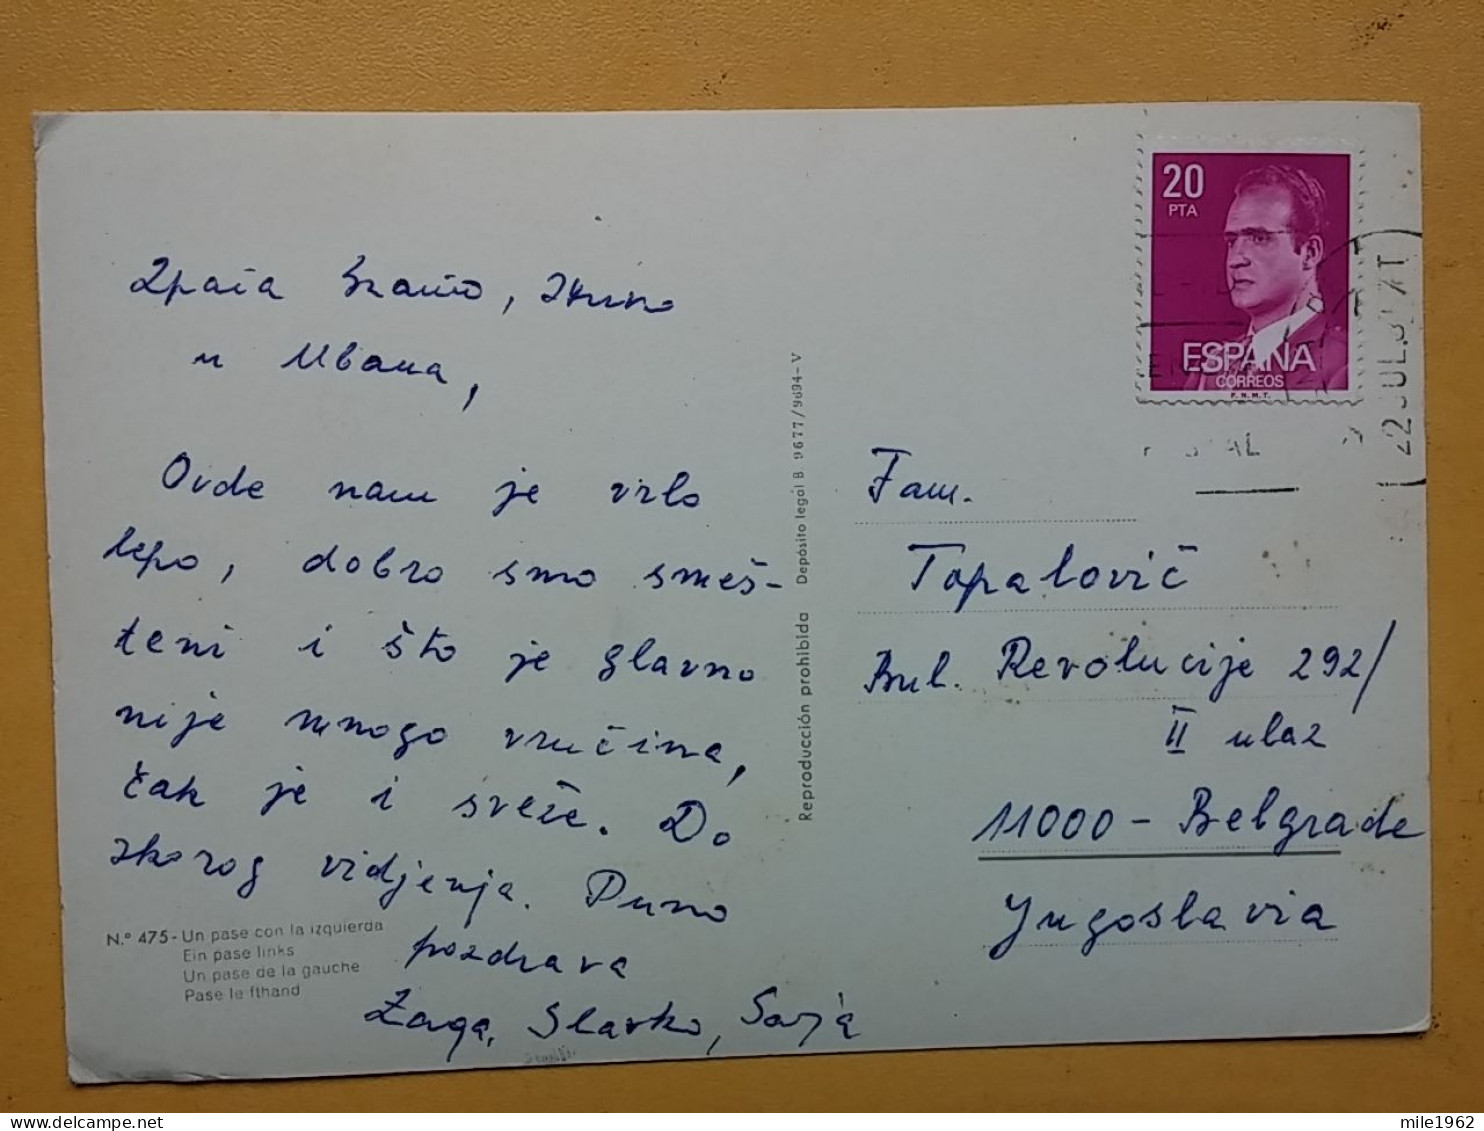 20
PTA
ESPAÑA
CORREOS
F.N.M.T.
22 JUL
Ovde nam je vrlo
lepo, dobro smo smeš-
teni i što je glavno
nije mnogo vrućina,
čak je i sveže. Do
skorog vidjenja. Puno
pozdrava
Zaga, Slavko, Sanja
N.º 475 - Un pase con la izquierda
Ein pase links
Un pase de la gauche
Pase le fthand
Reproducción prohibida Depósito legal B 9677/9694-V
Fam.
Topalović
Bul. Revolucije 292/
II ulaz
11000 - Belgrade
Jugoslavia
mile1962